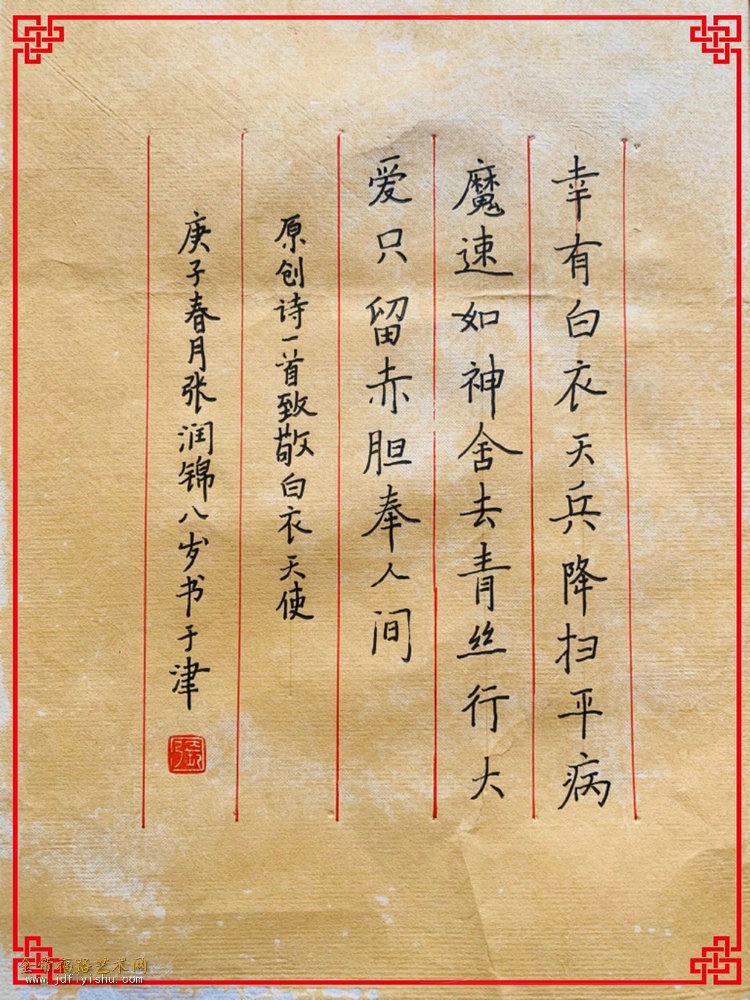 幸有白衣天兵降扫平病
魔速如神舍去青丝行大
爱只留赤胆奉人间
原创诗一首致敬白衣天使
庚子春月张润锦八岁书于津
www.jdflyishu.com